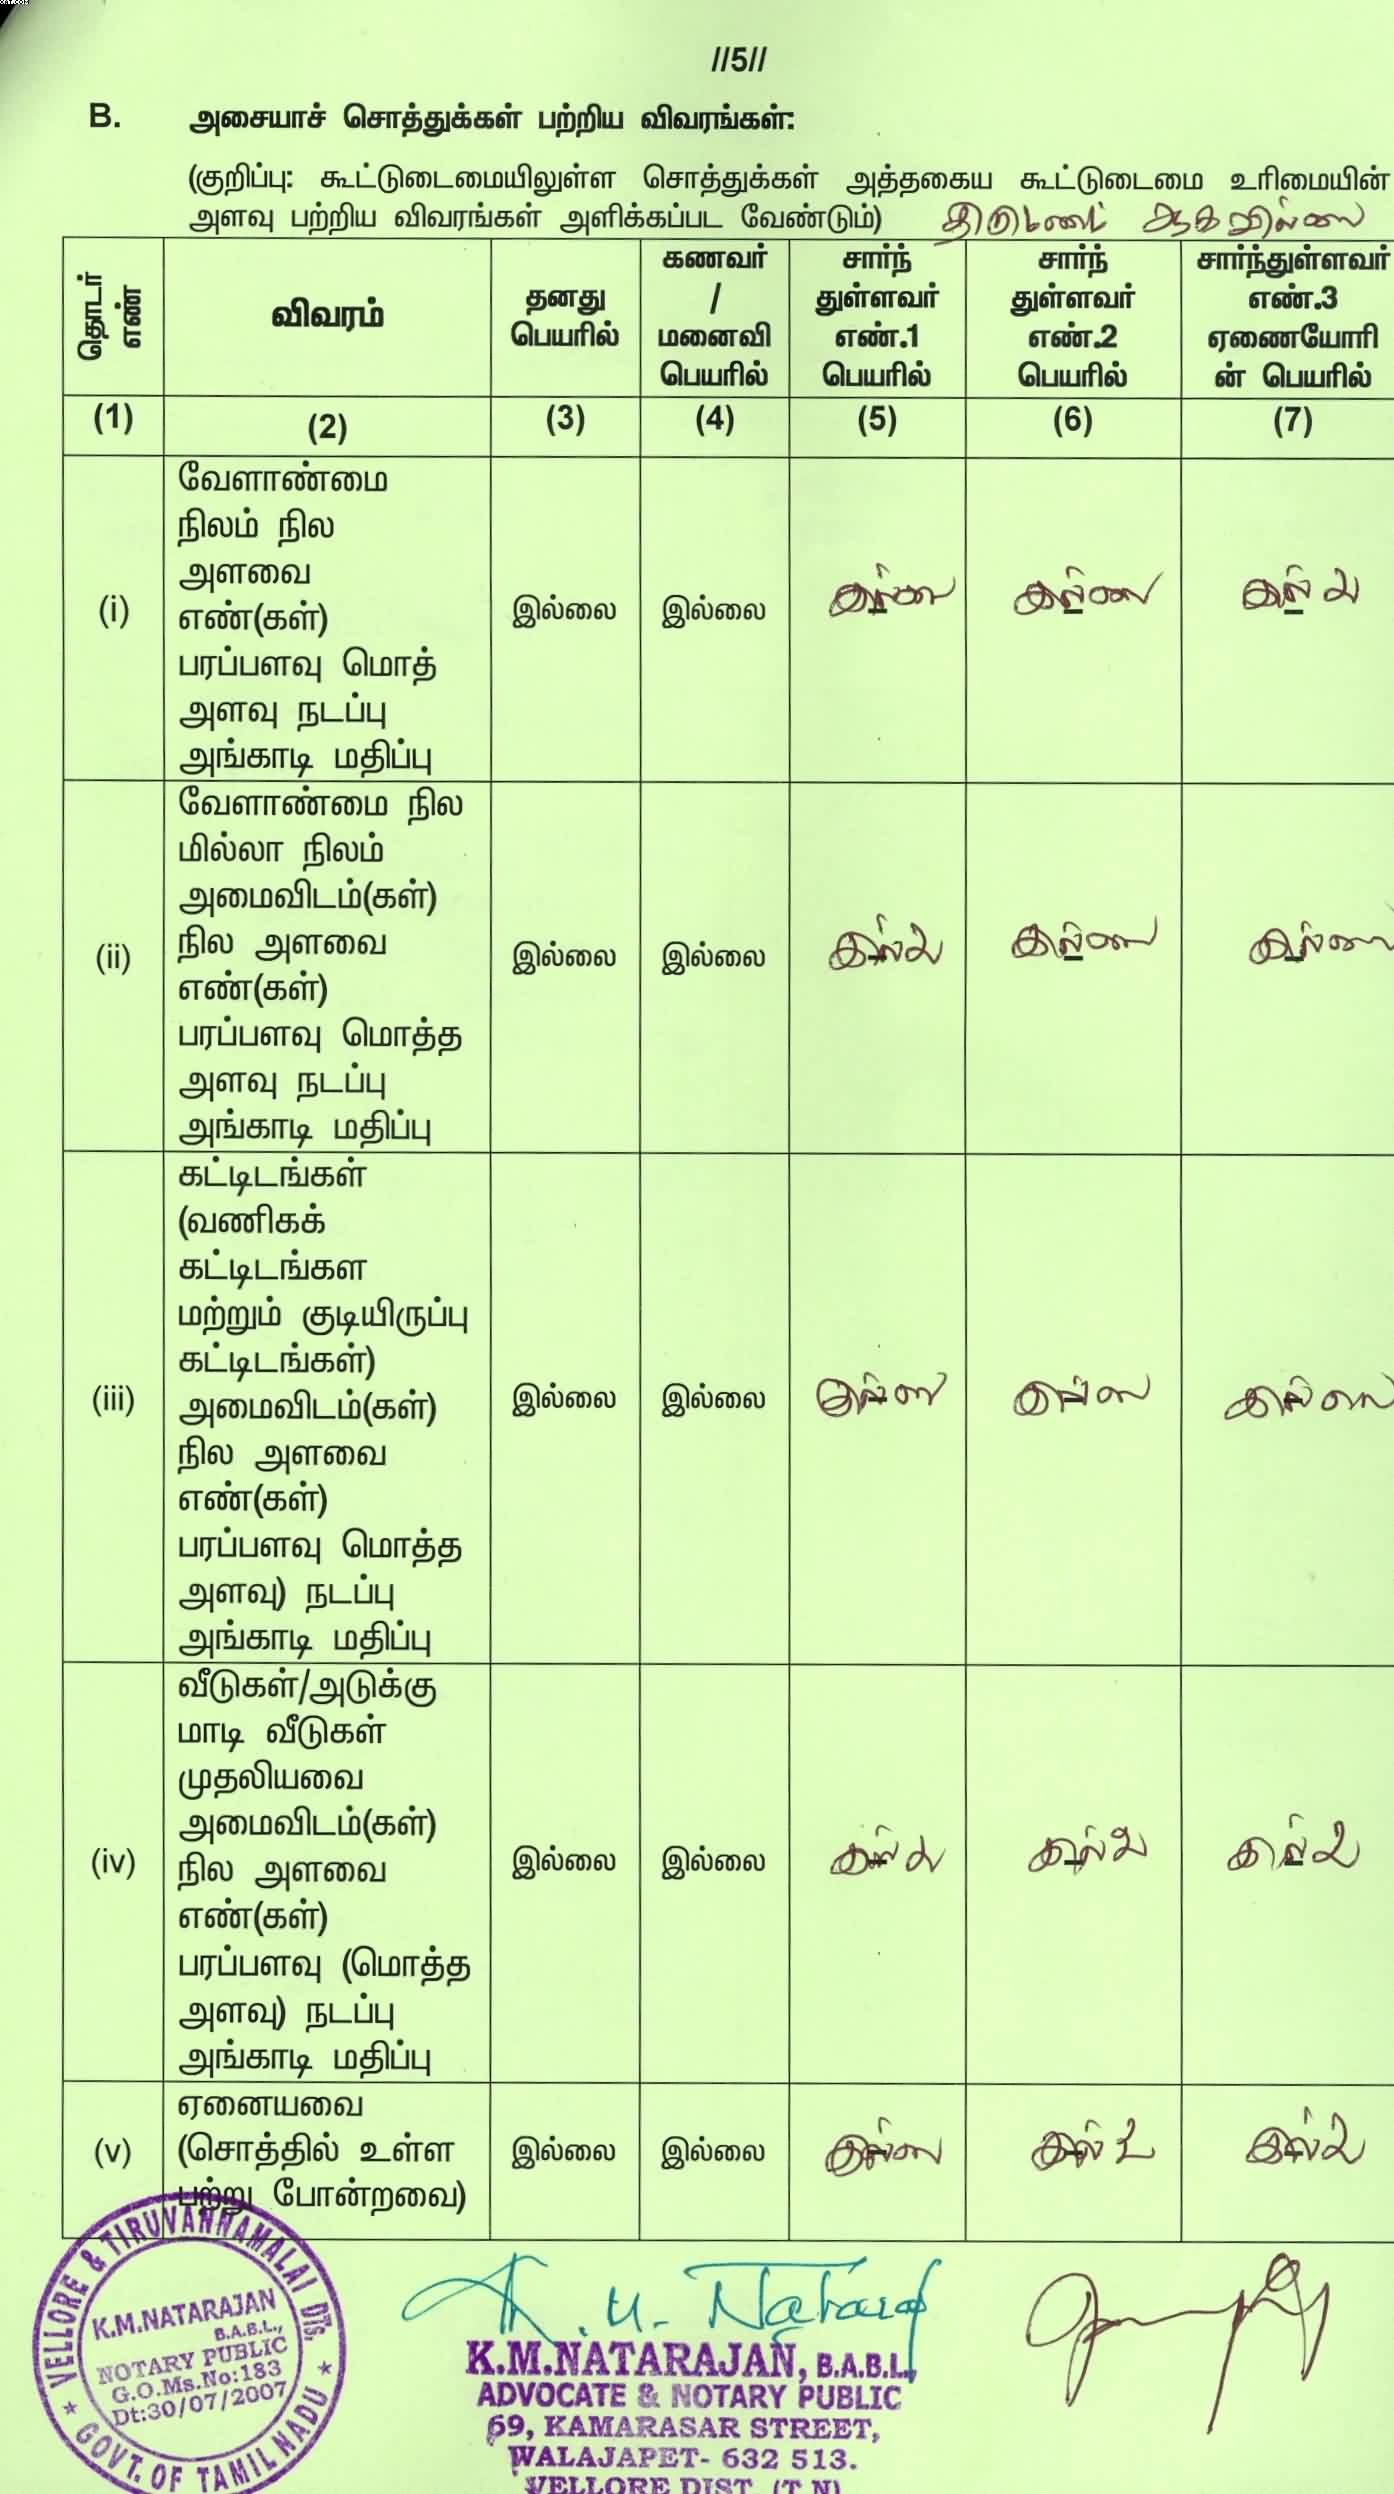 //5//
B. அசையாச் சொத்துக்கள் பற்றிய விவரங்கள்:
(குறிப்பு: கூட்டுடைமையிலுள்ள சொத்துக்கள் அத்தகைய கூட்டுடைமை உரிமையின்
அளவு பற்றிய விவரங்கள் அளிக்கப்பட வேண்டும்) திருமணம் ஆகவில்லை
தொடர்
எண்
விவரம்
தனது
பெயரில்
கணவர்
/
மனைவி
பெயரில்
சார்ந்
துள்ளவர்
எண்.1
பெயரில்
சார்ந்
துள்ளவர்
எண்.2
பெயரில்
சார்ந்துள்ளவர்
எண்.3
ஏணையோரி
ன் பெயரில்
(1) (2) (3) (4) (5) (6) (7)
வேளாண்மை
நிலம் நில
அளவை
எண்(கள்)
பரப்பளவு மொத்
அளவு நடப்பு
அங்காடி மதிப்பு
(i) இல்லை இல்லை இல்லை இல்லை இல்லை
வேளாண்மை நில
மில்லா நிலம்
அமைவிடம்(கள்)
நில அளவை
எண்(கள்)
பரப்பளவு மொத்த
அளவு நடப்பு
அங்காடி மதிப்பு
(ii) இல்லை இல்லை இல்லை இல்லை இல்லை
கட்டிடங்கள்
(வணிகக்
கட்டிடங்கள
மற்றும் குடியிருப்பு
கட்டிடங்கள்)
அமைவிடம்(கள்)
நில அளவை
எண்(கள்)
பரப்பளவு மொத்த
அளவு) நடப்பு
அங்காடி மதிப்பு
(iii) இல்லை இல்லை இல்லை இல்லை இல்லை
வீடுகள்/அடுக்கு
மாடி வீடுகள்
முதலியவை
அமைவிடம்(கள்)
நில அளவை
எண்(கள்)
பரப்பளவு (மொத்த
அளவு) நடப்பு
அங்காடி மதிப்பு
(iv) இல்லை இல்லை இல்லை இல்லை இல்லை
ஏனையவை
(சொத்தில் உள்ள
பற்று போன்றவை)
(v) இல்லை இல்லை இல்லை இல்லை இல்லை
VELLORE & TIRUVANNAMALAI DTs.
K.M.NATARAJAN
B.A.B.L.,
NOTARY PUBLIC
G.O.Ms.No:183
Dt:30/07/2007
★ GOVT. OF TAMIL NADU ★
K.M.NATARAJAN, B.A.B.L.,
ADVOCATE & NOTARY PUBLIC
69, KAMARASAR STREET,
WALAJAPET- 632 513.
VELLORE DIST. (T.N)